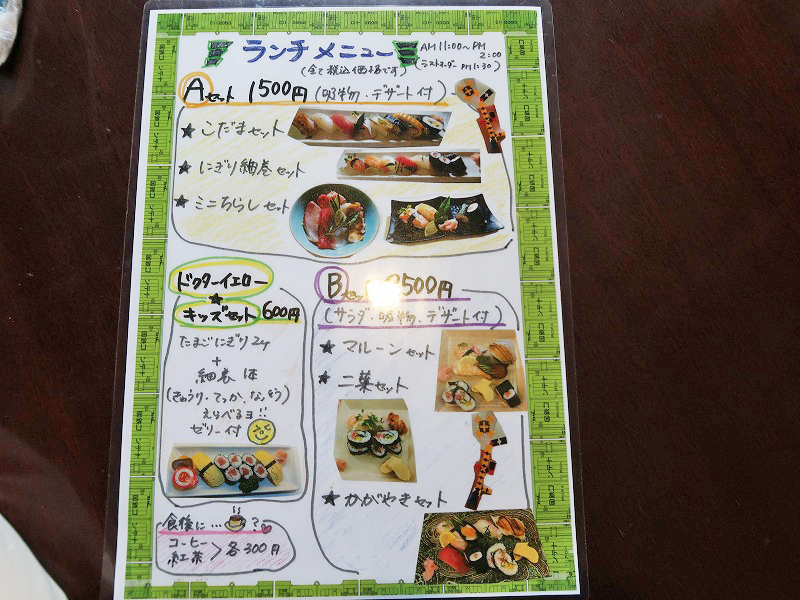 ランチメニュー
AM11:00〜PM2:00
(全て税込価格です)
(ラストオーダー PM1:30)
Aセット 1500円(吸物・デザート付)
★こだまセット
★にぎり細巻セット
★ミニちらしセット
ドクターイエロー
★
キッズセット 600円
たまごにぎり2ケ
+
細巻1本
(きゅうり・てっか・なっとう)
えらべるヨ!!
ゼリー付
食後に…?
コーヒー
紅茶 > 各300円
B 500円
(サラダ・吸物・デザート付)
★マルーンセット
★二葉セット
★かがやきセット